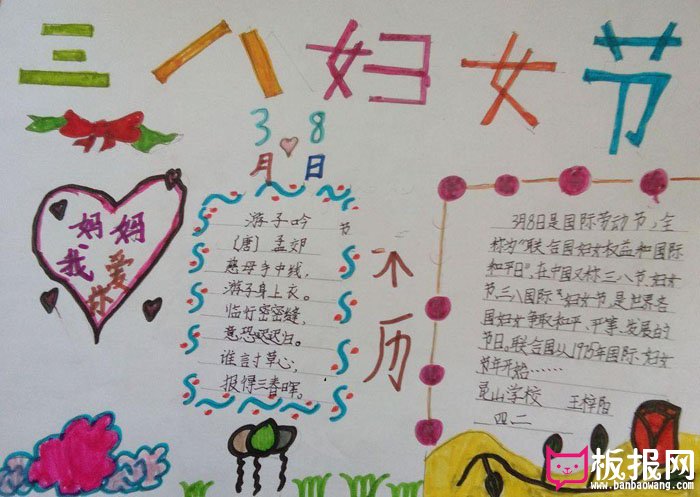 三八妇女节
3 8
月 日
妈妈
我爱
你
游子吟
〔唐〕孟郊
慈母手中线,
游子身上衣。
临行密密缝,
意恐迟迟归。
谁言寸草心,
报得三春晖。
节
来历
3月8日是国际劳动节,全
称为“联合国妇女权益和国际
和平日”,在中国又称三八节、妇女
节、三八国际“妇女节,是世界各
国妇女争取和平、平等、发展的
节日。联合国从1975年国际妇女
年开始……
昆山学校 王梓阳
四二
板报网
www.banbaowang.com